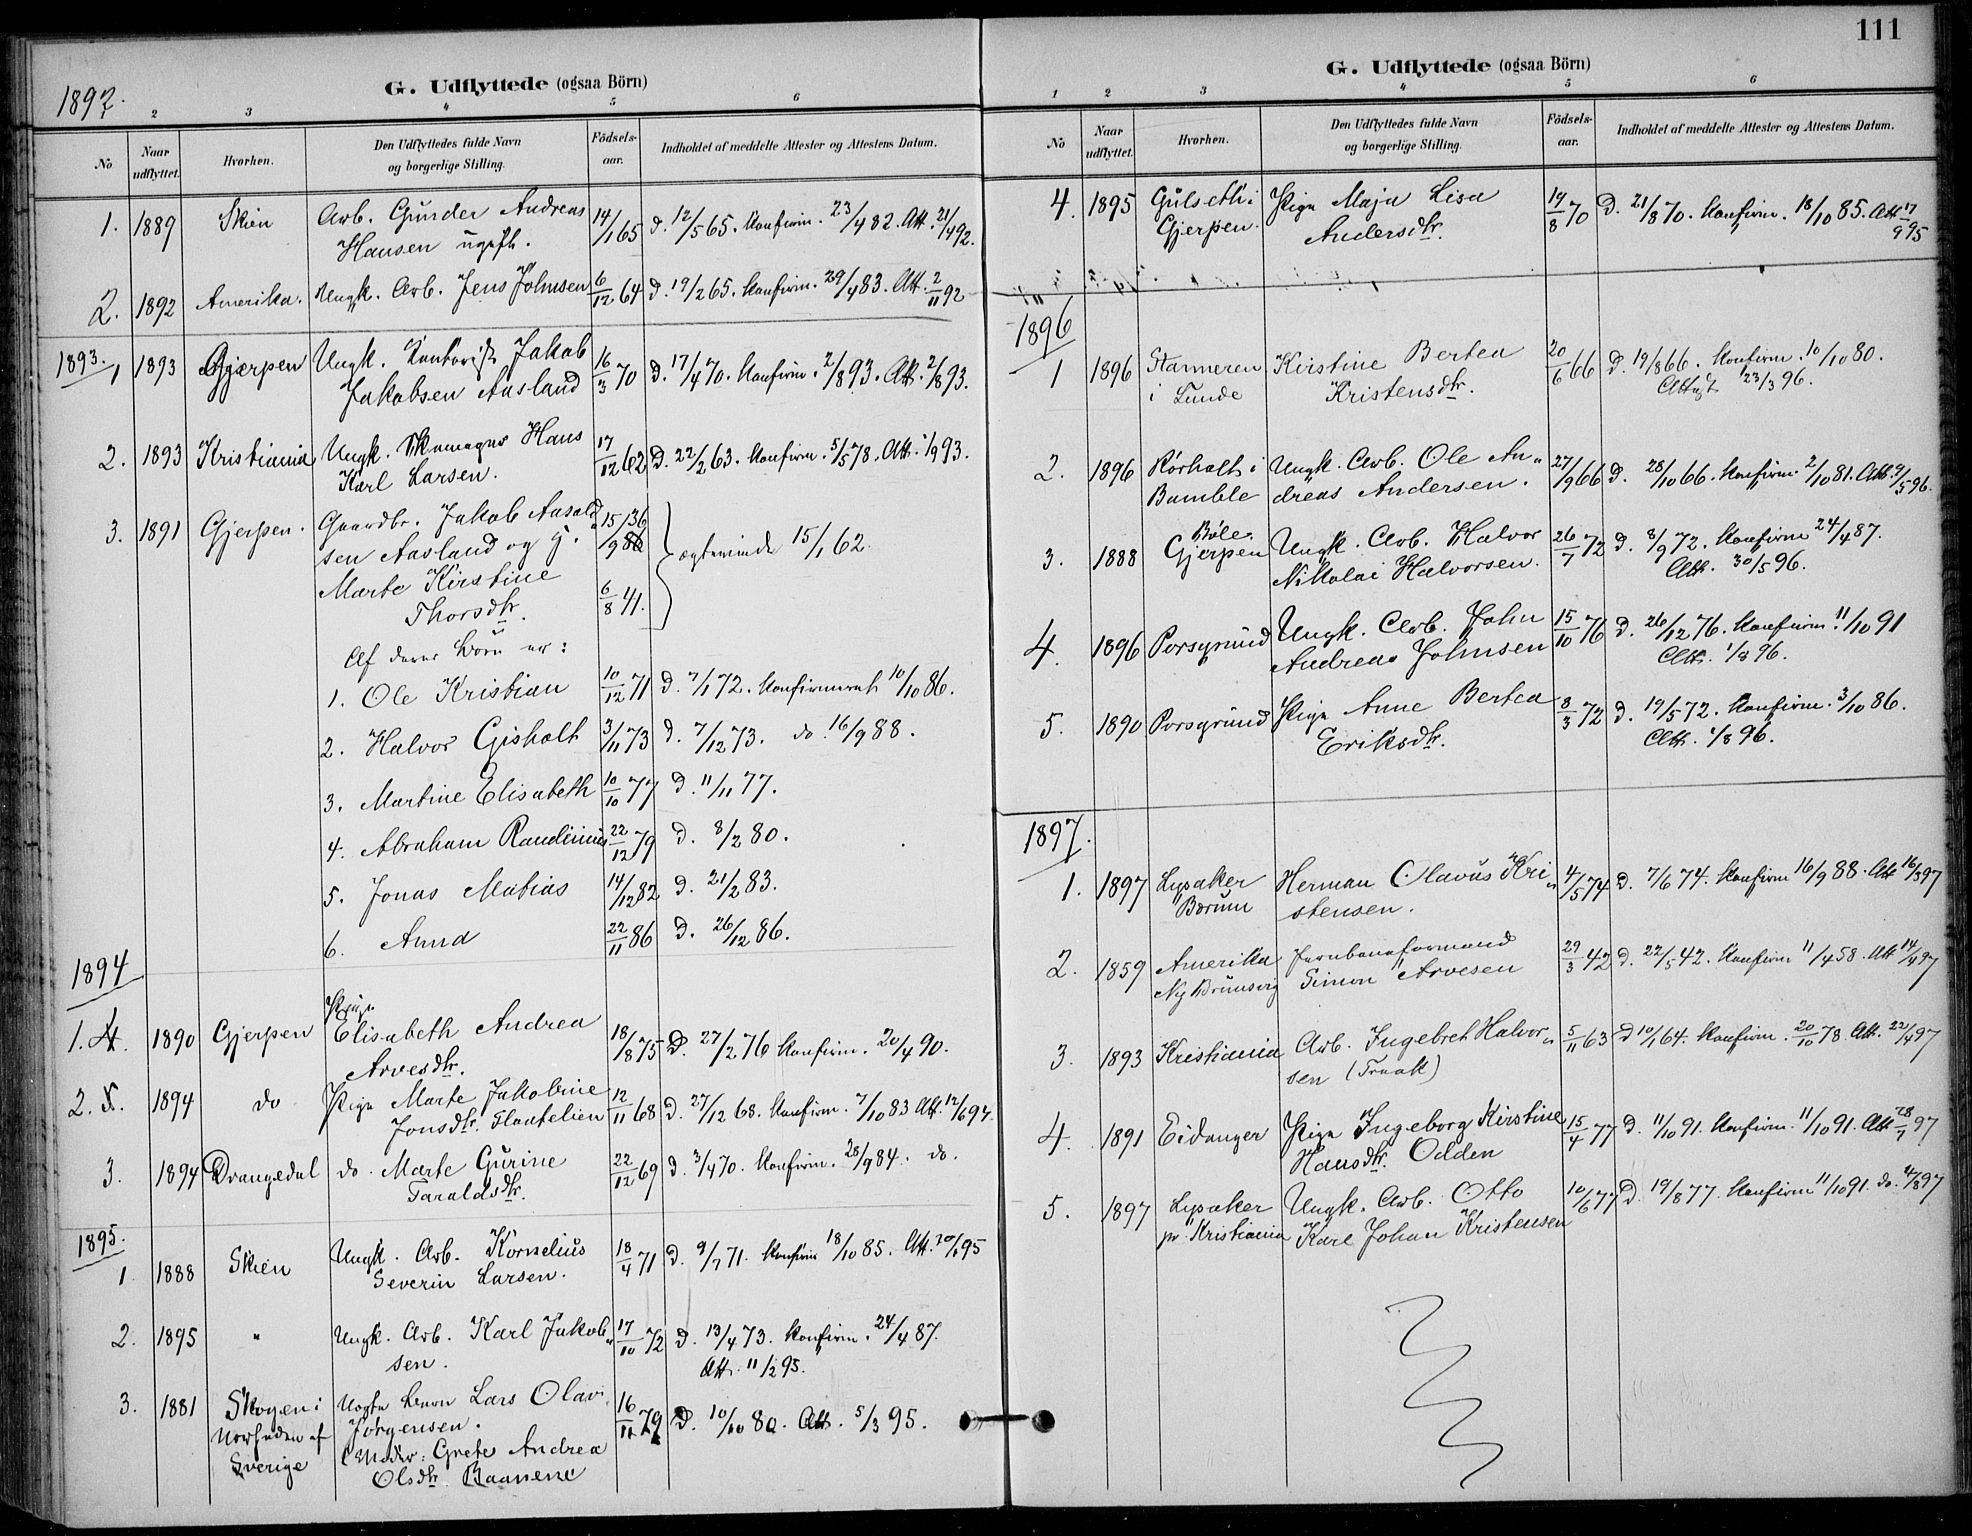 1892.
G. Udflyttede (ogsaa Börn)
2 3 4 5 6
No Naar udflyttet. Hvorhen. Den Udflyttedes fulde Navn og borgerlige Stilling. Födsels-aar. Indholdet af meddelte Attester og Attestens Datum.
1. 1889 Skien Arb. Gunder Andreas 14/1 65 d. 12/5 65. Konfirm. 23/4 82. Att. 21/4 92.
Hansen ugift.
2. 1892 Amerika. Ungk. Arb. Jens Johnsen 6/12 64 d. 19/2 65. Konfirm. 29/4 83. Att. 2/11 92
1893.
1 1893 Gjerpen Ungk. Kontorist Jakob 16/3 70 d. 17/4 70. Konfirm. 2/8 93. Att. 2/8 93.
Jakobsen Aasland
2. 1893 Kristiania Ungk. Skomager Hans 17/12 62 d. 22/2 63. Konfirm. 5/5 78. Att. 1/9 93.
Karl Larsen.
3. 1891 Gjerpen. Gaardbr. Jakob Aasold 15/9 36
sen Aasland og h.
ægteviede 15/1 62.
Marte Kirstine 6/8 41.
Thorsdtr.
Af deres Börn er:
1. Ole Kristian 10/12 71 d. 7/1 72. Konfirmeret 10/10 86.
2. Halvor Gisholt 3/11 73 d. 7/12 73. do. 16/9 88.
3. Martine Elisabeth 10/10 77 d. 11/11 77.
4. Abraham Raudinius 22/12 79 d. 8/2 80.
5. Jonas Matias 14/12 82 d. 21/2 83.
6. Anna 22/11 86 d. 26/12 86.
1894
Pige
1. 4. 1890 Gjerpen Elisabeth Andrea 18/8 75 d. 27/2 76 Konfirm. 20/4 90.
Arvesdtr.
2. 5. 1894 do Pige Marte Jakobine 12/11 68 d. 27/12 68. Konfirm. 7/10 83 Att. 12/6 94.
Jonsdtr. Flautelien
3. 1894 Drangedal do. Marte Gurine 22/12 69 d. 3/4 70. Konfirm. 28/9 84. do.
Taraldsdtr.
1895.
1. 1888 Skien Ungk. Arb. Kornelius 18/4 71 d. 9/7 71. Konfirm 18/10 85. Att. 10/1 95
Severin Larsen.
2. 1895 " Ungk. Arb. Karl Jakob 17/10 72 d. 13/4 73. Konfirm. 24/4 87.
sen. Att. 11/2 95.
3. 1881 Skogen i Uegte Barn Lars Olav 16/11 79 d. 10/10 80. Att. 5/3 95.
Norheden af Jörgensen.
Sverige (Moder: Grete Andrea
Olsdtr Baanene
111
G. Udflyttede (ogsaa Börn)
1 2 3 4 5 6
No Naar udflyttet. Hvorhen. Den Udflyttedes fulde Navn og borgerlige Stilling. Födsels-aar. Indholdet af meddelte Attester og Attestens Datum.
4. 1895 Gulseth i Pige Maja Lisa 19/8 70 d. 21/8 70. Konfirm. 18/10 85. Att 17/9 95
Gjerpen. Andersdtr.
1896
1 1896 Stanneren Kirstine Bertea 20/6 66 d. 19/8 66. Konfirm. 10/10 80.
i Tunde Kristensdtr. Attest 23/3 96.
2. 1896 Rörholt i Ungk. Arb. Ole An- 27/9 66 d. 28/10 66. Konfirm. 2/10 81. Att. 9/5 96.
Bamble dreas Andersen.
Böle
3. 1888 Gjerpen Ungk. Arb. Halvor 26/7 72 d. 8/9 72. Konfirm 24/4 87.
Nikolai Halvorsen. Att. 30/5 96.
4. 1896 Porsgrund Ungk. Arb. John 15/10 76 d. 26/12 76. Konfirm. 11/10 91
Andreas Johnsen Att. 1/8 96.
5. 1890 Porsgrund Pige Anne Bertea 8/3 72 d. 19/5 72. Konfirm. 3/10 86.
Eriksdtr. Att. 1/8 96.
1897.
1. 1897 Lysaker Herman Olavus Kri- 4/5 74 d. 7/6 74. Konfirm 16/9 88. Att 16/3 97
Bærum stensen.
2. 1859 Amerika Jernbaneformand 29/3 42 d. 22/5 42. Konfirm 11/4 58. Att 14/4 97
Ny Brunsvig Simon Arvesen
3. 1893 Kristiania Arb. Ingebret Halvor- 5/11 63 d 10/1 64. Konfirm. 20/10 78. Att. 22/4 97
sen (Traak)
4. 1891 Eidanger Pige Ingeborg Kirstine 15/4 77 d. 11/10 91. Konfirm. 11/10 91. Att 28/7 97
Hansdtr. Odden
5. 1897 Lysaker Ungk. Arb. Otto 10/6 77 d. 19/8 77. Konfirm 11/10 91. do. 4/8 97
pr Kristiania Karl Johan Kristensen